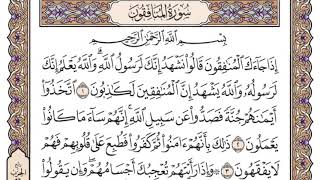 سُورَةُ المُنَافِقُونَ
بِسْمِ اللَّهِ الرَّحْمَٰنِ الرَّحِيمِ
إِذَا جَاءَكَ الْمُنَافِقُونَ قَالُوا نَشْهَدُ إِنَّكَ لَرَسُولُ اللَّهِ وَاللَّهُ يَعْلَمُ إِنَّكَ
لَرَسُولُهُ وَاللَّهُ يَشْهَدُ إِنَّ الْمُنَافِقِينَ لَكَاذِبُونَ ١ اتَّخَذُوا
أَيْمَانَهُمْ جُنَّةً فَصَدُّوا عَن سَبِيلِ اللَّهِ إِنَّهُمْ سَاءَ مَا كَانُوا
يَعْمَلُونَ ٢ ذَٰلِكَ بِأَنَّهُمْ آمَنُوا ثُمَّ كَفَرُوا فَطُبِعَ عَلَىٰ قُلُوبِهِمْ فَهُمْ
لَا يَفْقَهُونَ ٣ وَإِذَا رَأَيْتَهُمْ تُعْجِبُكَ أَجْسَامُهُمْ وَإِن يَقُولُوا